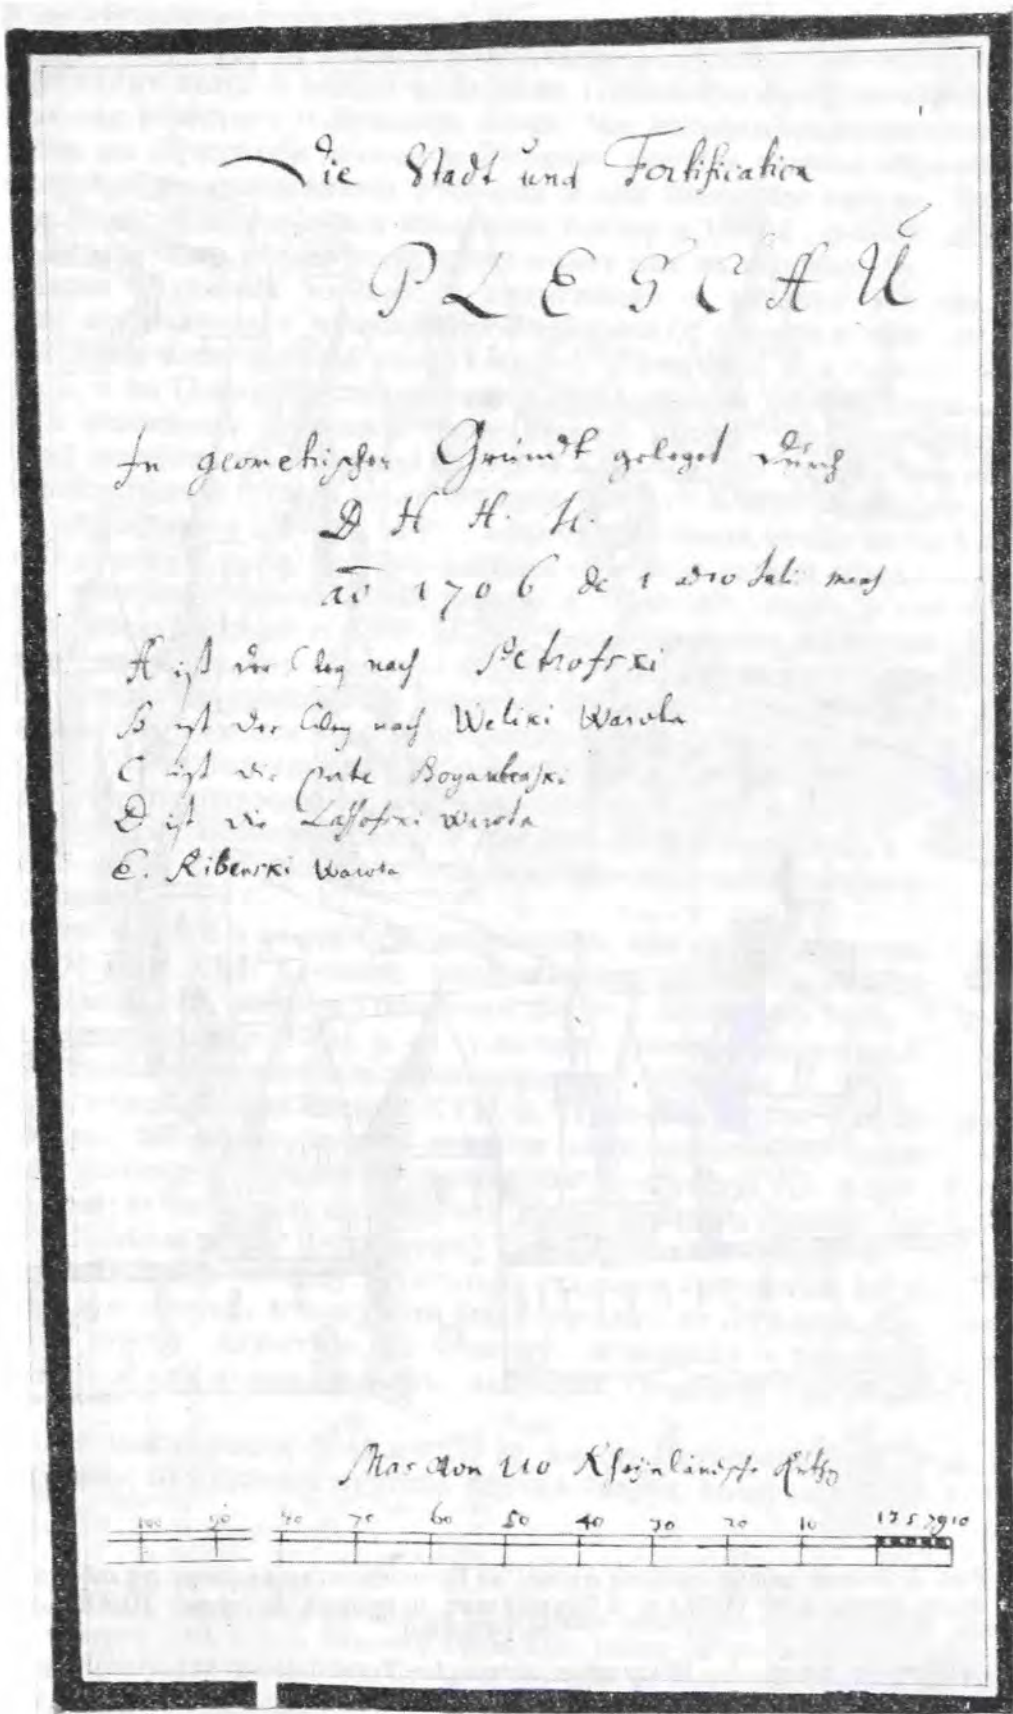 Die Stadt und Fortification
PLESCAŬ
In geometrischen Grŭndt geleget dŭrch
D H H. H.
aō 1706 de 1 Juli
A ist der Weg nach Petrofski
B ist der Weg nach Weliki Warota
C ist die porte
D ist die Warota
E. Ribenski Warota
Mas von 110 Rheinländische Ruthen
100 90 80 70 60 50 40 30 20 10 1 3 5 7 9 10